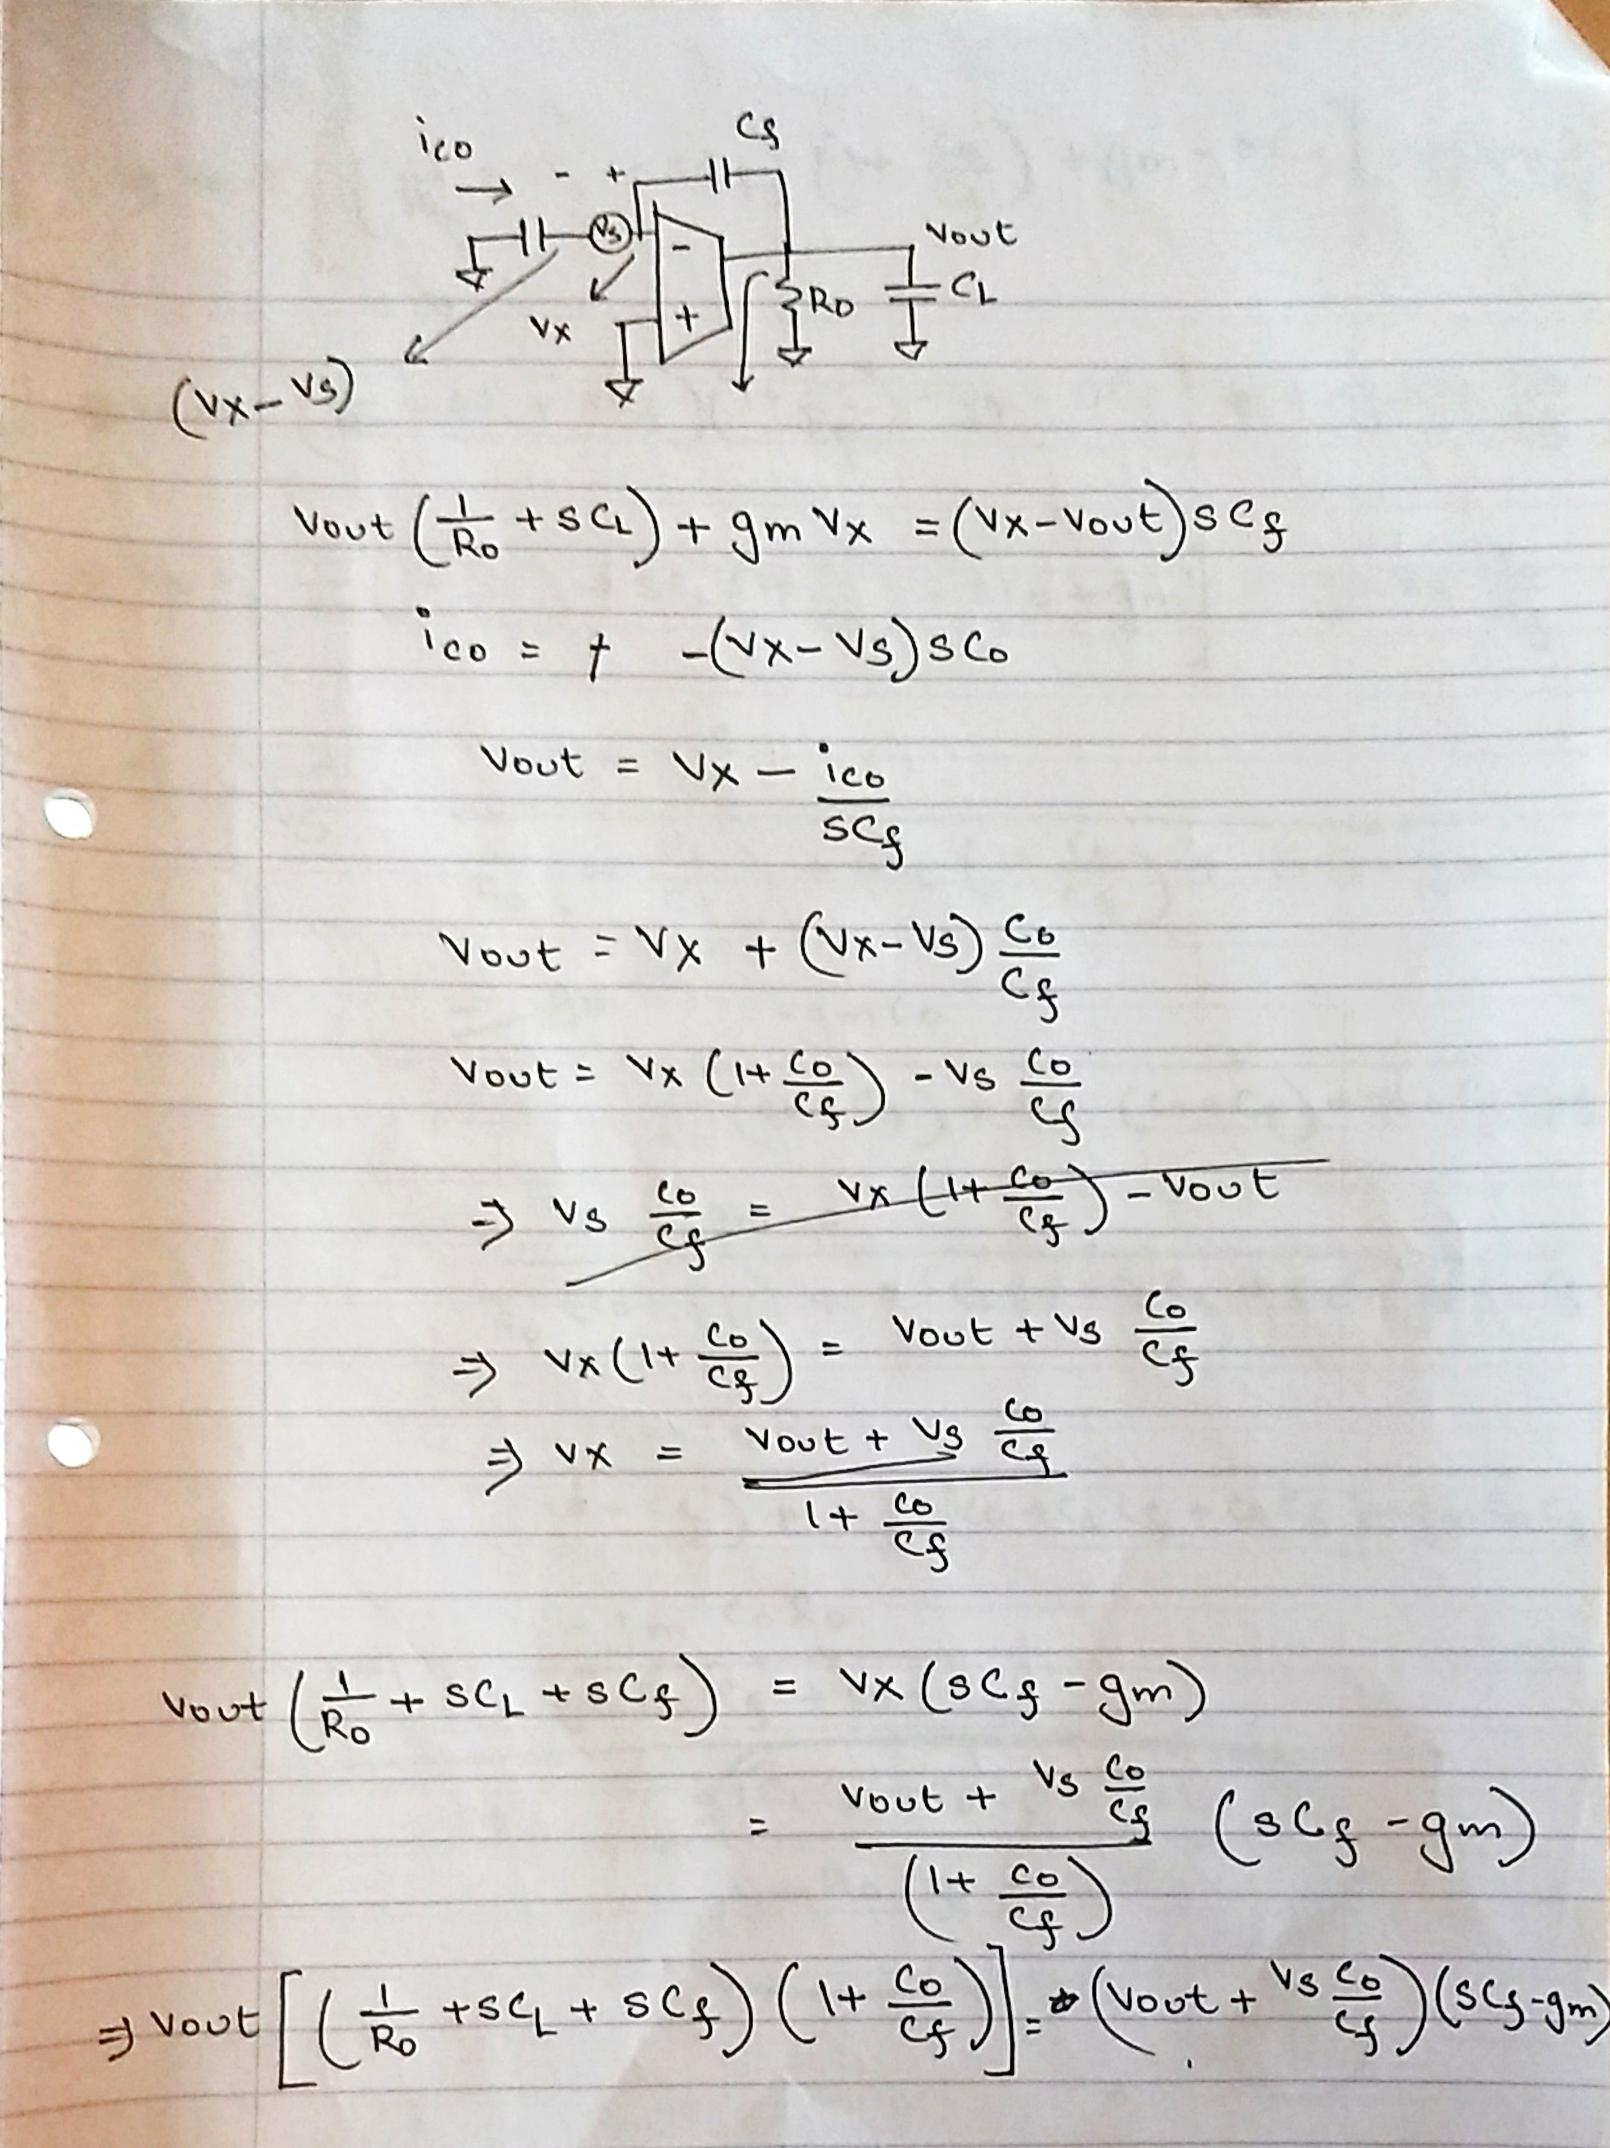 ico Cf
- +
Vs - Vout
Vx + RO CL
(Vx-Vs)
Vout (1/Ro + SCL) + gm Vx = (Vx-Vout) sCf
ico = + -(Vx-Vs) sCo
Vout = Vx - ico/sCf
Vout = Vx + (Vx-Vs) Co/Cf
Vout = Vx (1+ Co/Cf) - Vs Co/Cf
⇒ Vs Co/Cf = Vx (1+ Co/Cf) - Vout
⇒ Vx (1+ Co/Cf) = Vout + Vs Co/Cf
⇒ Vx = (Vout + Vs Co/Cf)/(1+ Co/Cf)
Vout (1/Ro + SCL + sCf) = Vx (sCf - gm)
= (Vout + Vs Co/Cf)/(1+ Co/Cf) (sCf - gm)
⇒ Vout [(1/Ro + SCL + sCf) (1+ Co/Cf)] = (Vout + Vs Co/Cf) (sCf-gm)